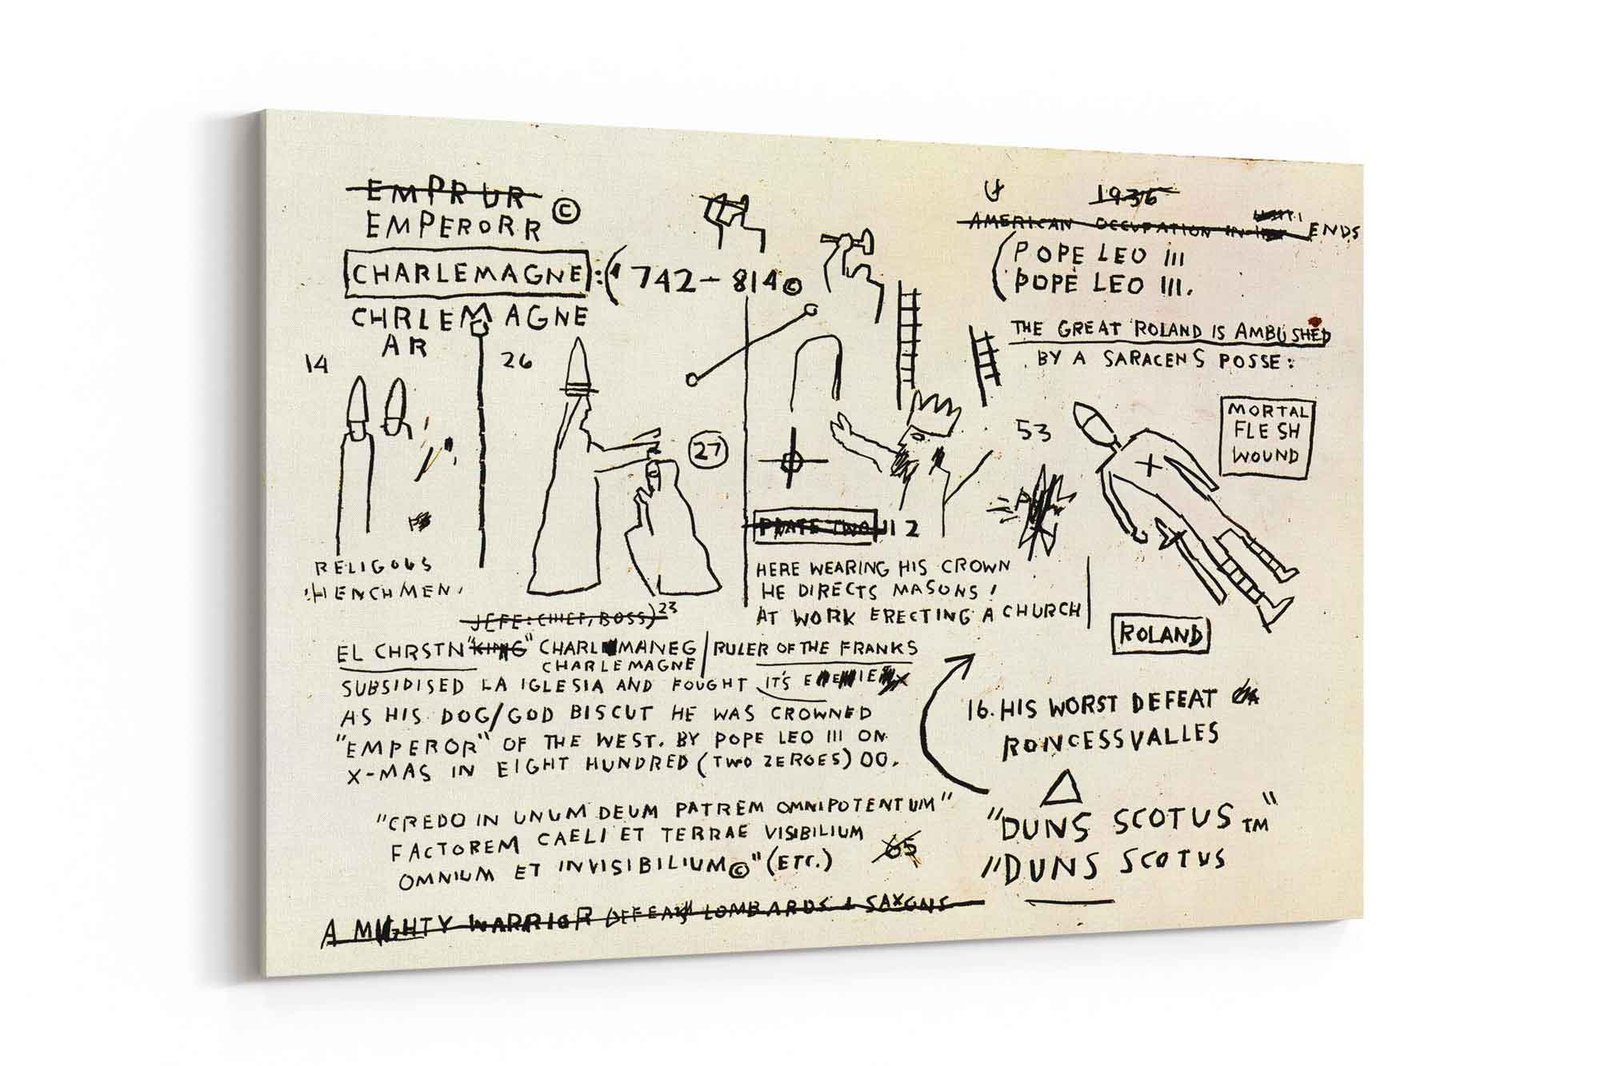 EMPRUR
EMPERORR ©
CHARLEMAGNE : (742 - 814©
CHRLEMAGNE
AR
14
26
27
RELIGOUS
HENCHMEN.
1936
AMERICAN OCCUPATION IN ENDS
(POPE LEO III
POPE LEO III.
THE GREAT ROLAND IS AMBUSHED
BY A SARACENS POSSE:
53
MORTAL
FLESH
WOUND
PLATE TWO II 2
HERE WEARING HIS CROWN
HE DIRECTS MASONS!
AT WORK ERECTING A CHURCH
ROLAND
JEFE: CHIEF, BOSS) 23
EL CHRSTN "KING" CHARLMANEG / RULER OF THE FRANKS
CHARLEMAGNE
SUBSIDISED LA IGLESIA AND FOUGHT IT'S
AS HIS DOG/GOD BISCUT HE WAS CROWNED
"EMPEROR" OF THE WEST. BY POPE LEO III ON
X-MAS IN EIGHT HUNDRED (TWO ZEROES) 00.
16. HIS WORST DEFEAT
RONCESSVALLES
"CREDO IN UNUM DEUM PATREM OMNIPOTENTUM"
FACTOREM CAELI ET TERRAE VISIBILIUM
OMNIUM ET INVISIBILIUM©" (ETC.)
65
"DUNS SCOTUS TM"
"DUNS SCOTUS
A MIGHTY WARRIOR DEFEATS LOMBARDS & SAXONS